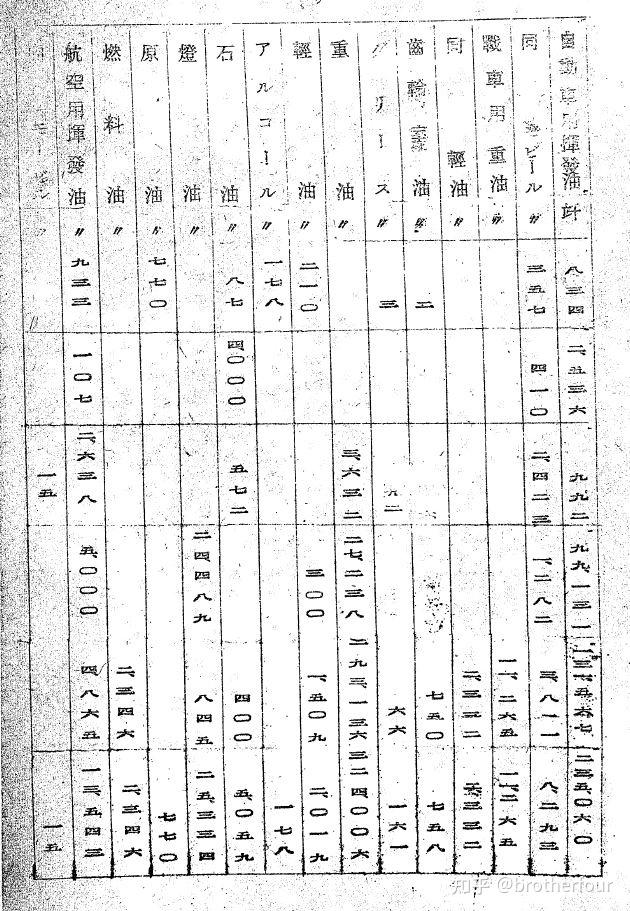 自動車用揮發油 竏 八三四 二、五三六 九九二 九九、一三一 一三一、五六七 二三五、〇六〇
同 モビール 〃 三五七 四一〇 二、四二三 一、二八二 三、八二一 八、二九三
戰車用重油 〃 一一、二六五 一一、二六五
同 輕油 〃 二、三三二 二、三三二
齒輪 油 〃 二 七五〇 七五八
グリース 〃 三 九二 六六 一六一
重油 〃 三、六三二 二七、二三八 二九三、一三六 三二四、〇〇六
輕油 〃 二一〇 三〇〇 一、五〇九 二、〇一九
アルコール 〃 一七八 一七八
石油 〃 八七 四〇〇〇 五七二 四〇〇 五、〇五九
燈油 〃 二四四八九 八四五 二五、三三四
原油 〃 七七〇 七七〇
燃料油 〃 二、三四六 二、三四六
航空用揮發油 〃 九三三 一〇七 二、六三八 五、〇〇〇 四、八六五 一三、五四三
一五 一五
知乎 @brotherfour